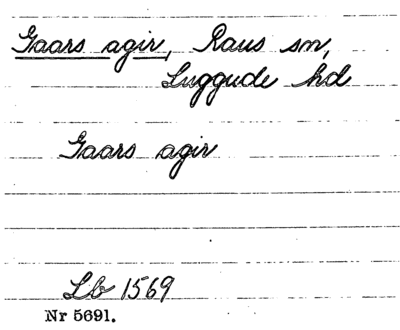 Gaars agir, Raus sn,
Luggude hd
Gaars agir
Lb 1569
Nr 5691.